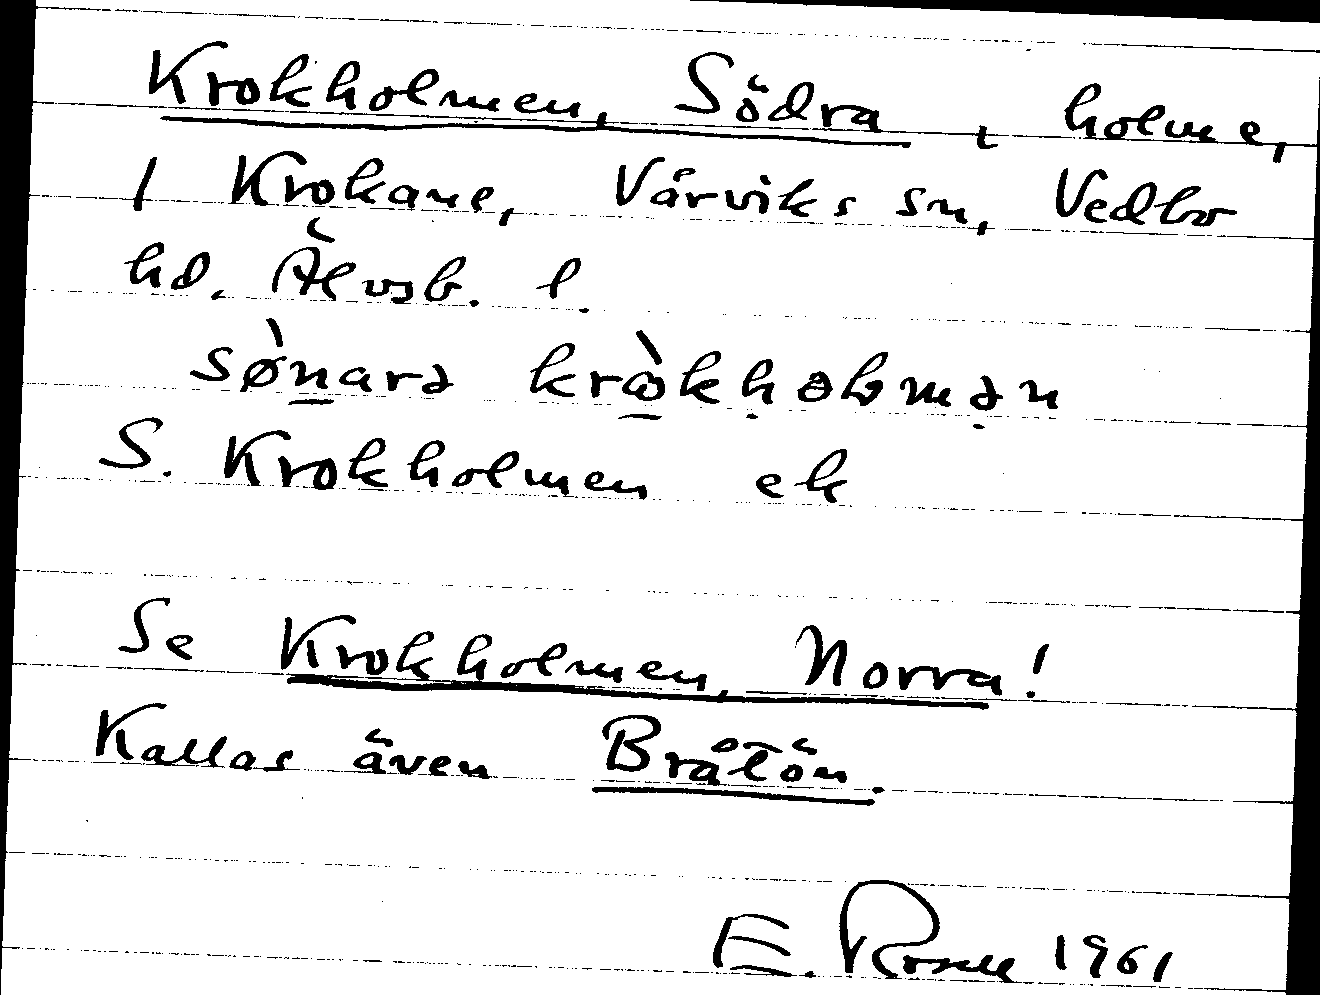 Krokholmen, Södra, holme,
I Krokane, Vårviks sn, Vedbo
hd. Älvsb. l.
sø̀narə krò̱kḥəɫmə̣n
S. Krokholmen ek
Se Krokholmen, Norra!
Kallas även Bråtön.
E. Rosell 1961